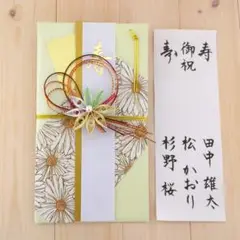 寿
寿
御祝
寿
田中 雄太
松 かおり
杉野 桜